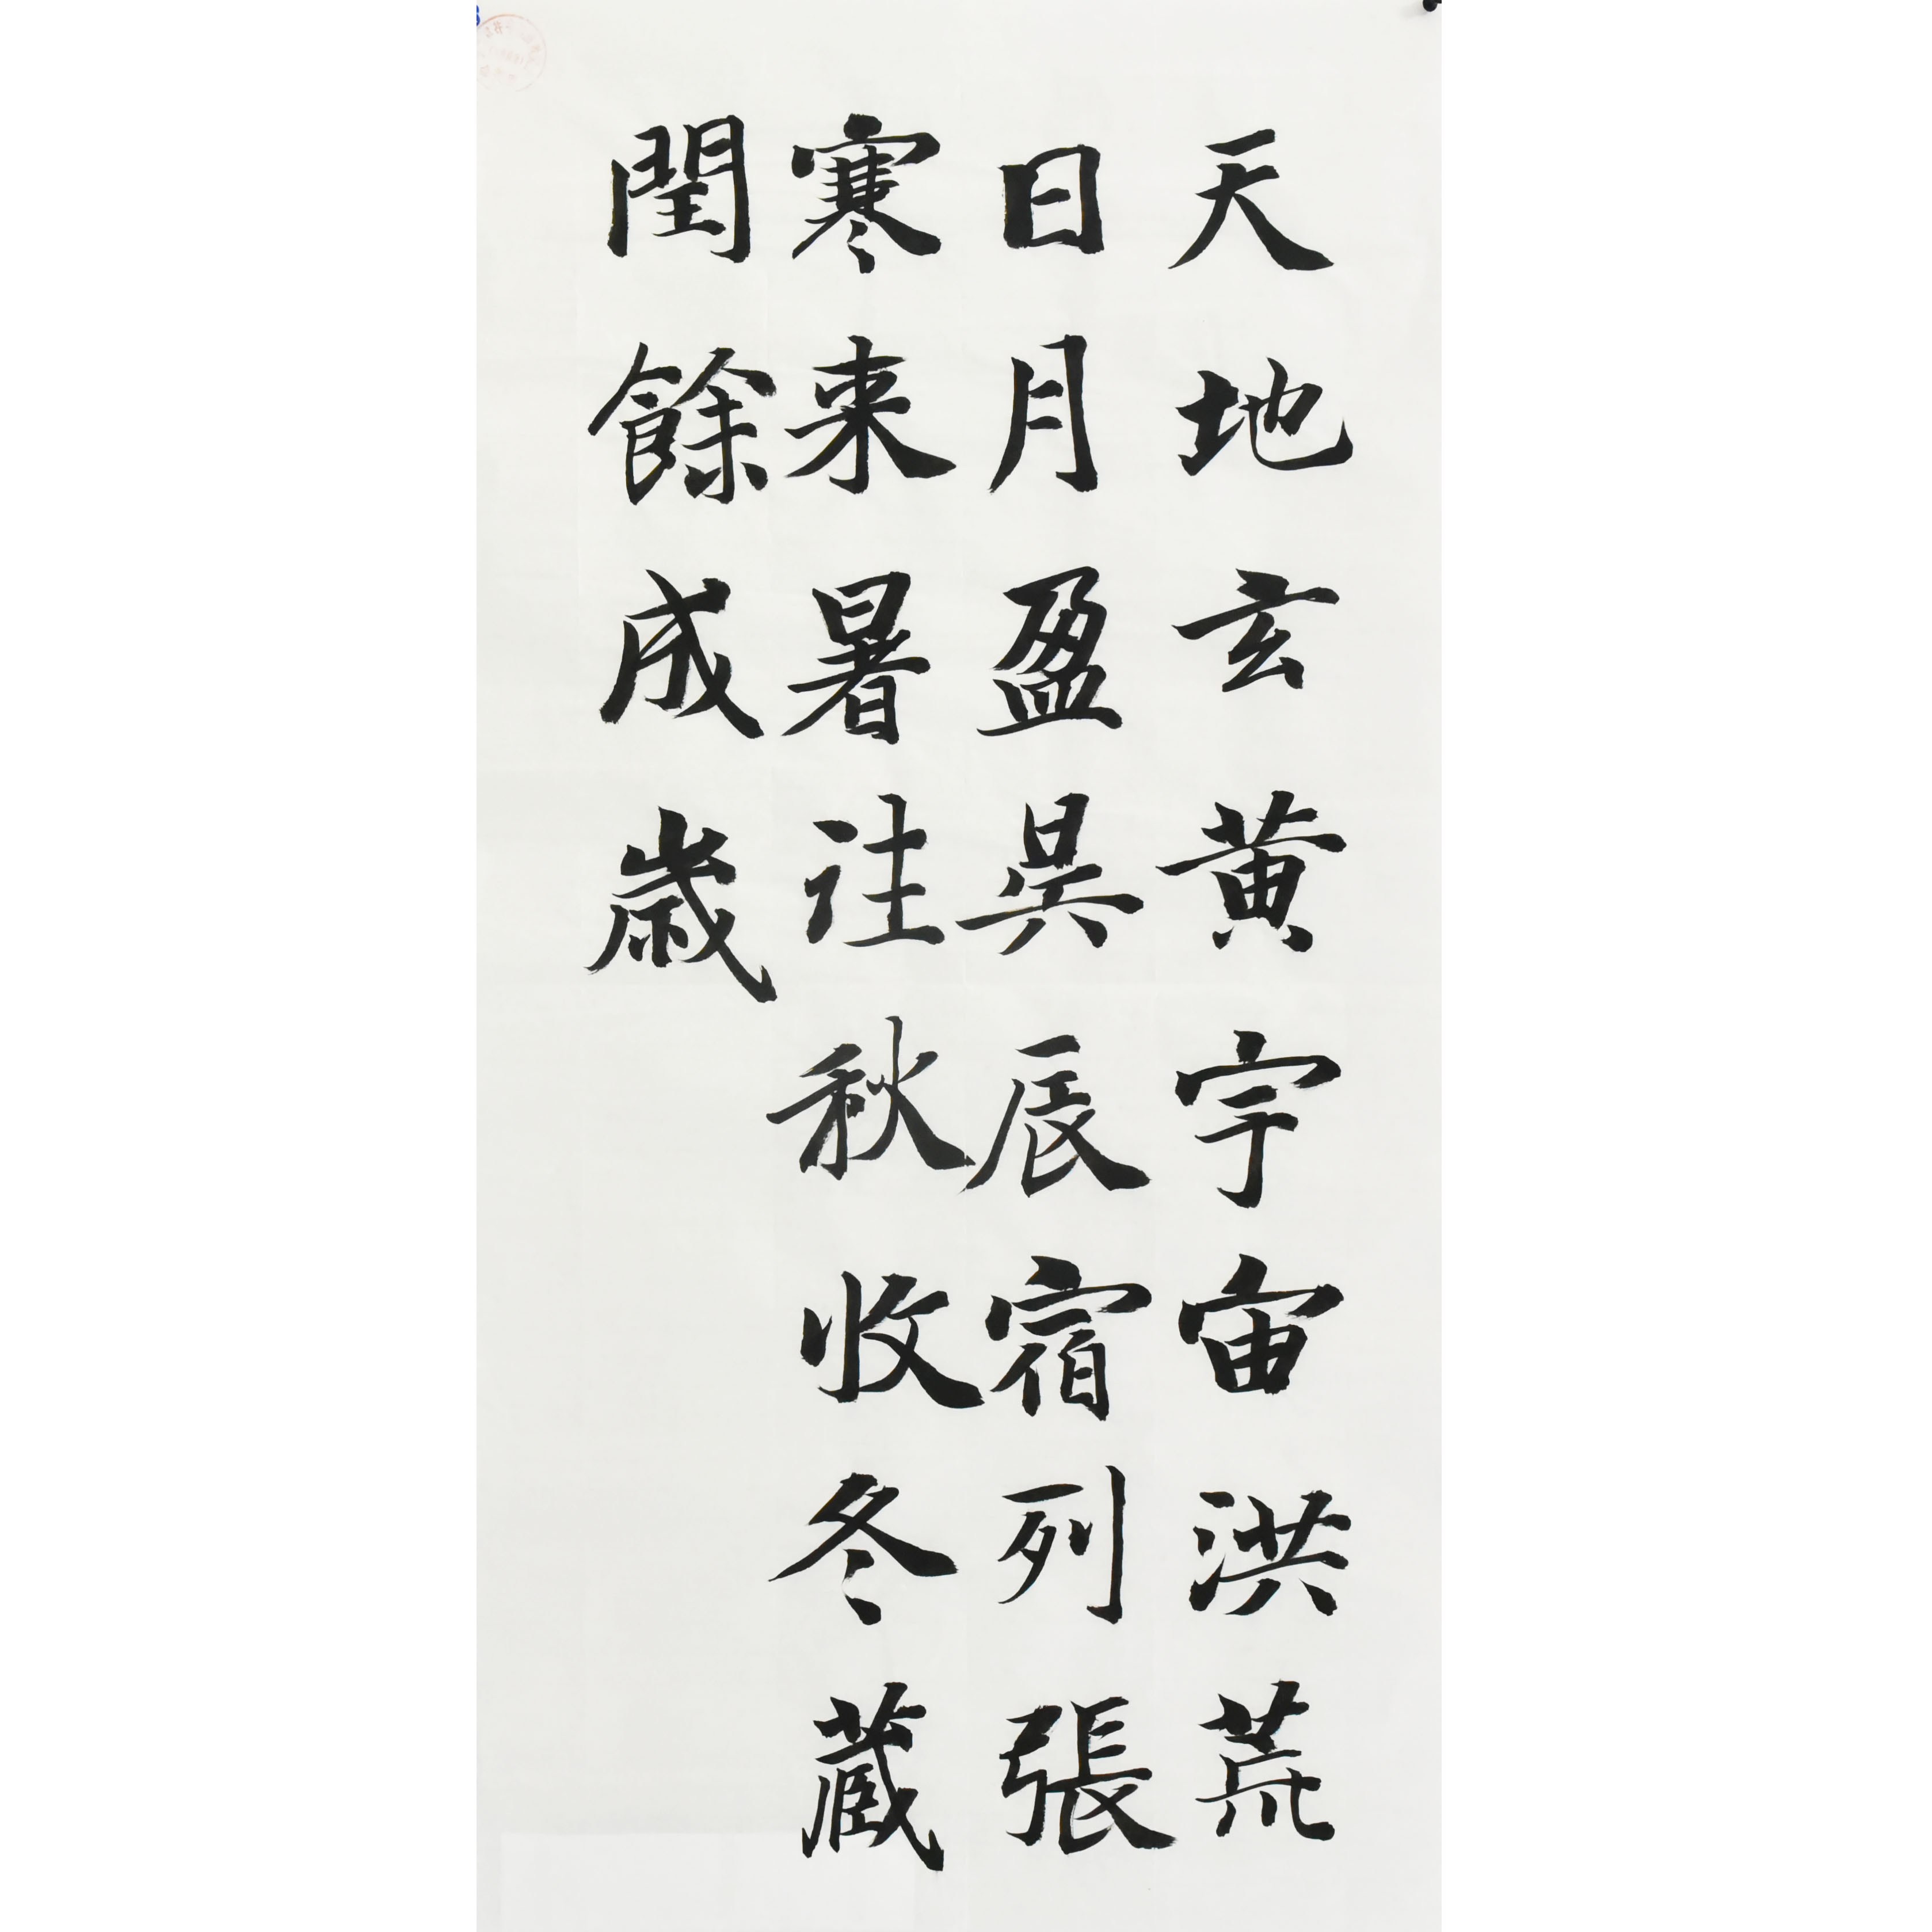 天地玄黄宇宙洪荒
日月盈昗辰宿列張
寒来暑往秋收冬藏
閏餘成歳